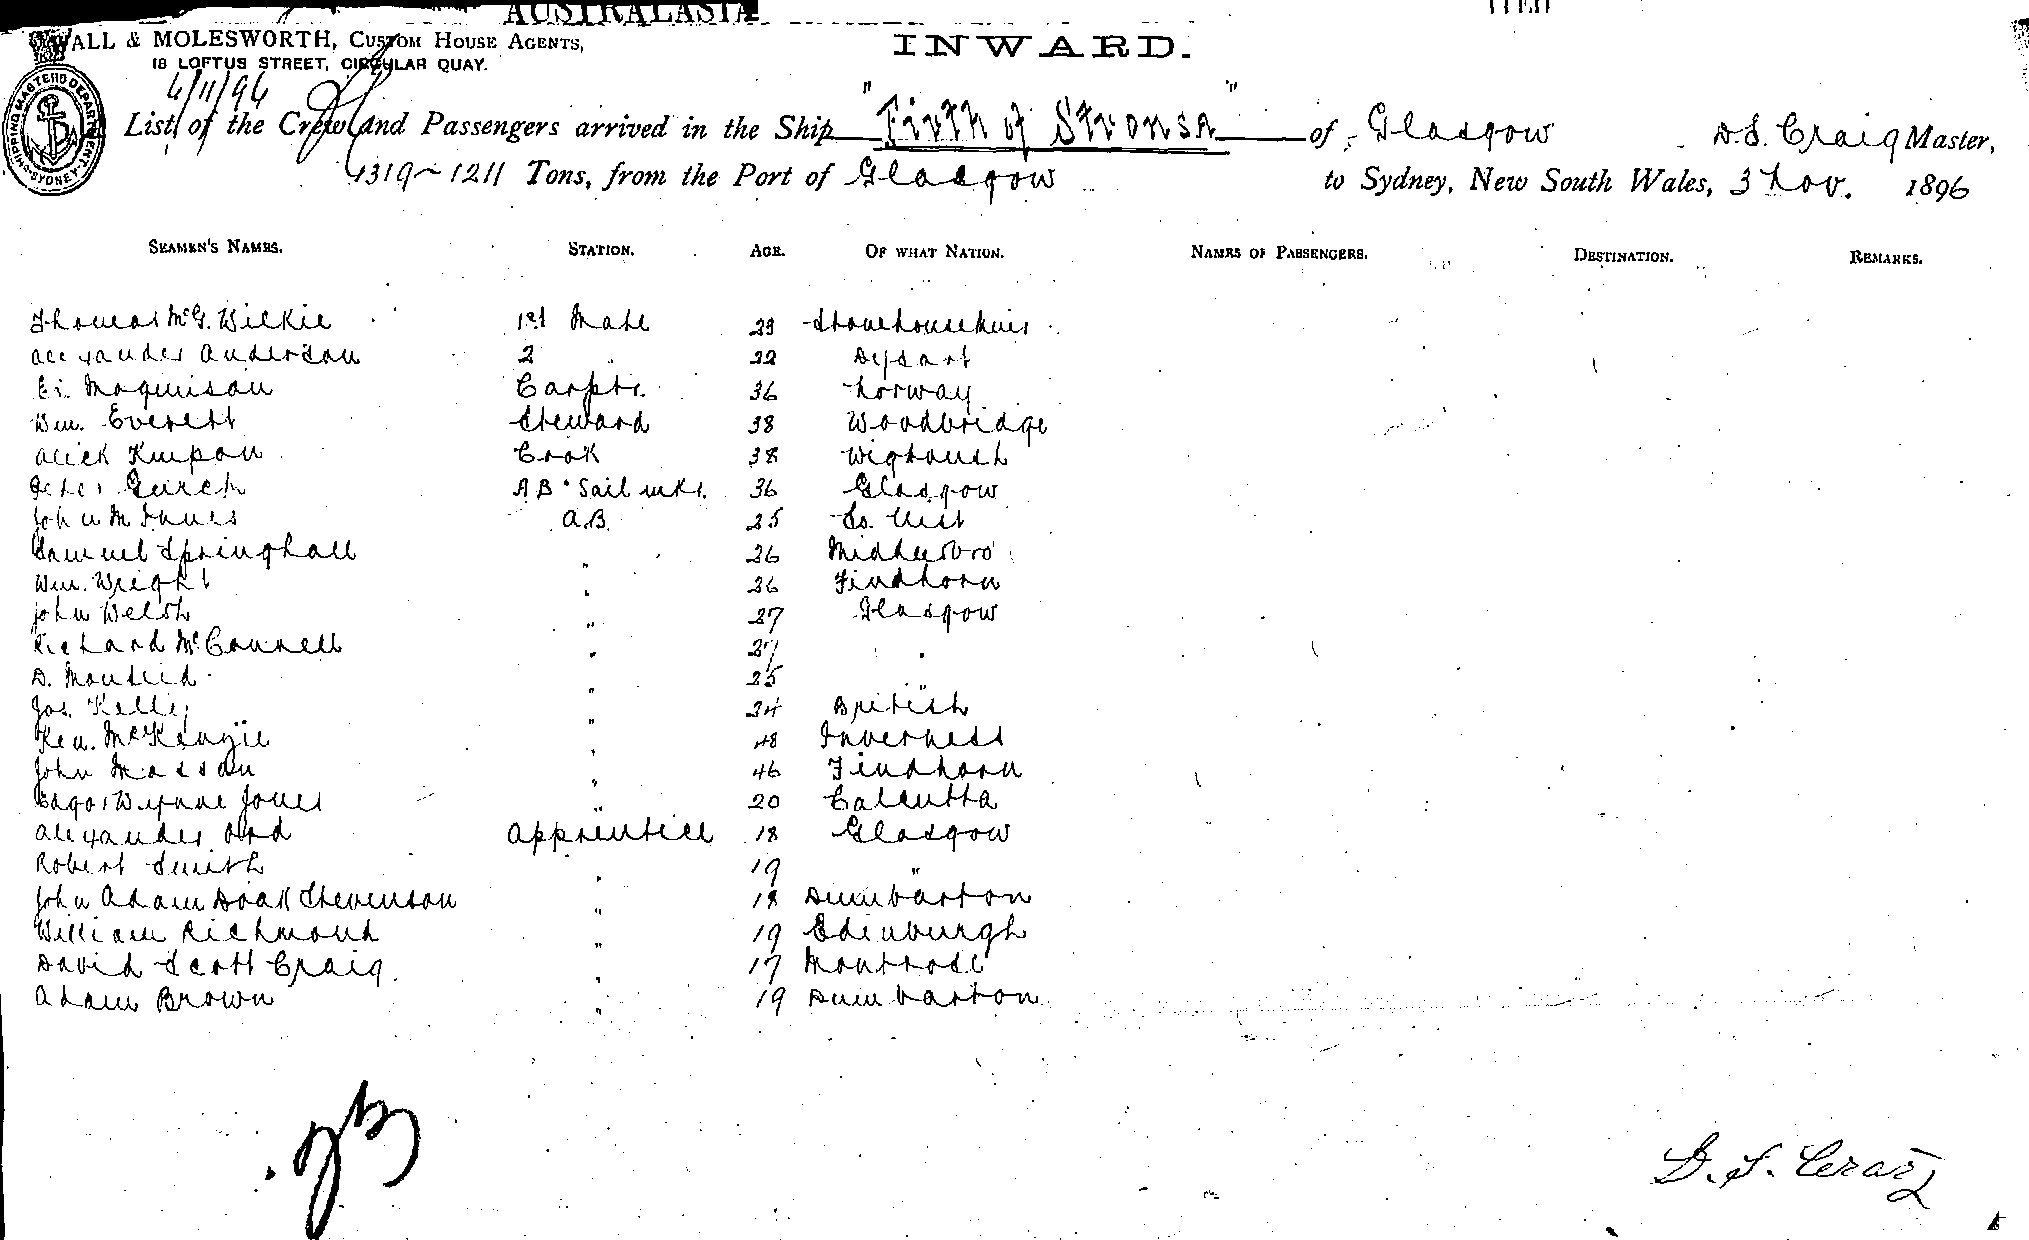 AUSTRALASIA
WALL & MOLESWORTH, CUSTOM HOUSE AGENTS,
18 LOFTUS STREET, CIRCULAR QUAY.
INWARD.
SHIPPING MASTERS DEPARTMENT SYDNEY
4/11/96
List of the Crew and Passengers arrived in the Ship "Firth of Stronsa" of Glasgow D.S. Craig Master,
1319~1211 Tons, from the Port of Glasgow to Sydney, New South Wales, 3 Nov. 1896
SEAMEN'S NAMES. STATION. AGE. OF WHAT NATION. NAMES OF PASSENGERS. DESTINATION. REMARKS.
Thomas McG. Wilkie 1st Mate
Alexander Anderson 2 " 22 Dysart
Carptr. 36 Norway
Wm. Everett Steward 38 Woodbridge
Alick Cook 38
Peter AB & Sail mkr. 36 Glasgow
John A.B. 25 So. Uist
Samuel Springhall " 26 Middlesbro
Wm. Wright " 26 Findhorn
John Welsh " 27 Glasgow
Richard McConnell " 27 "
D. " 25 "
Jos. Kelly " 34 British
Ken. McKenzie " 48 Inverness
John Masson " 46 Findhorn
Jones " 20 Calcutta
Alexander Ord Apprentice 18 Glasgow
Robert Smith " 19 "
John Adam Doak Stevenson " 18 Dumbarton
William Richmond " 19 Edinburgh
David Scott Craig " 17 Montrose
Adam Brown " 19 Dumbarton
D. S. Craig